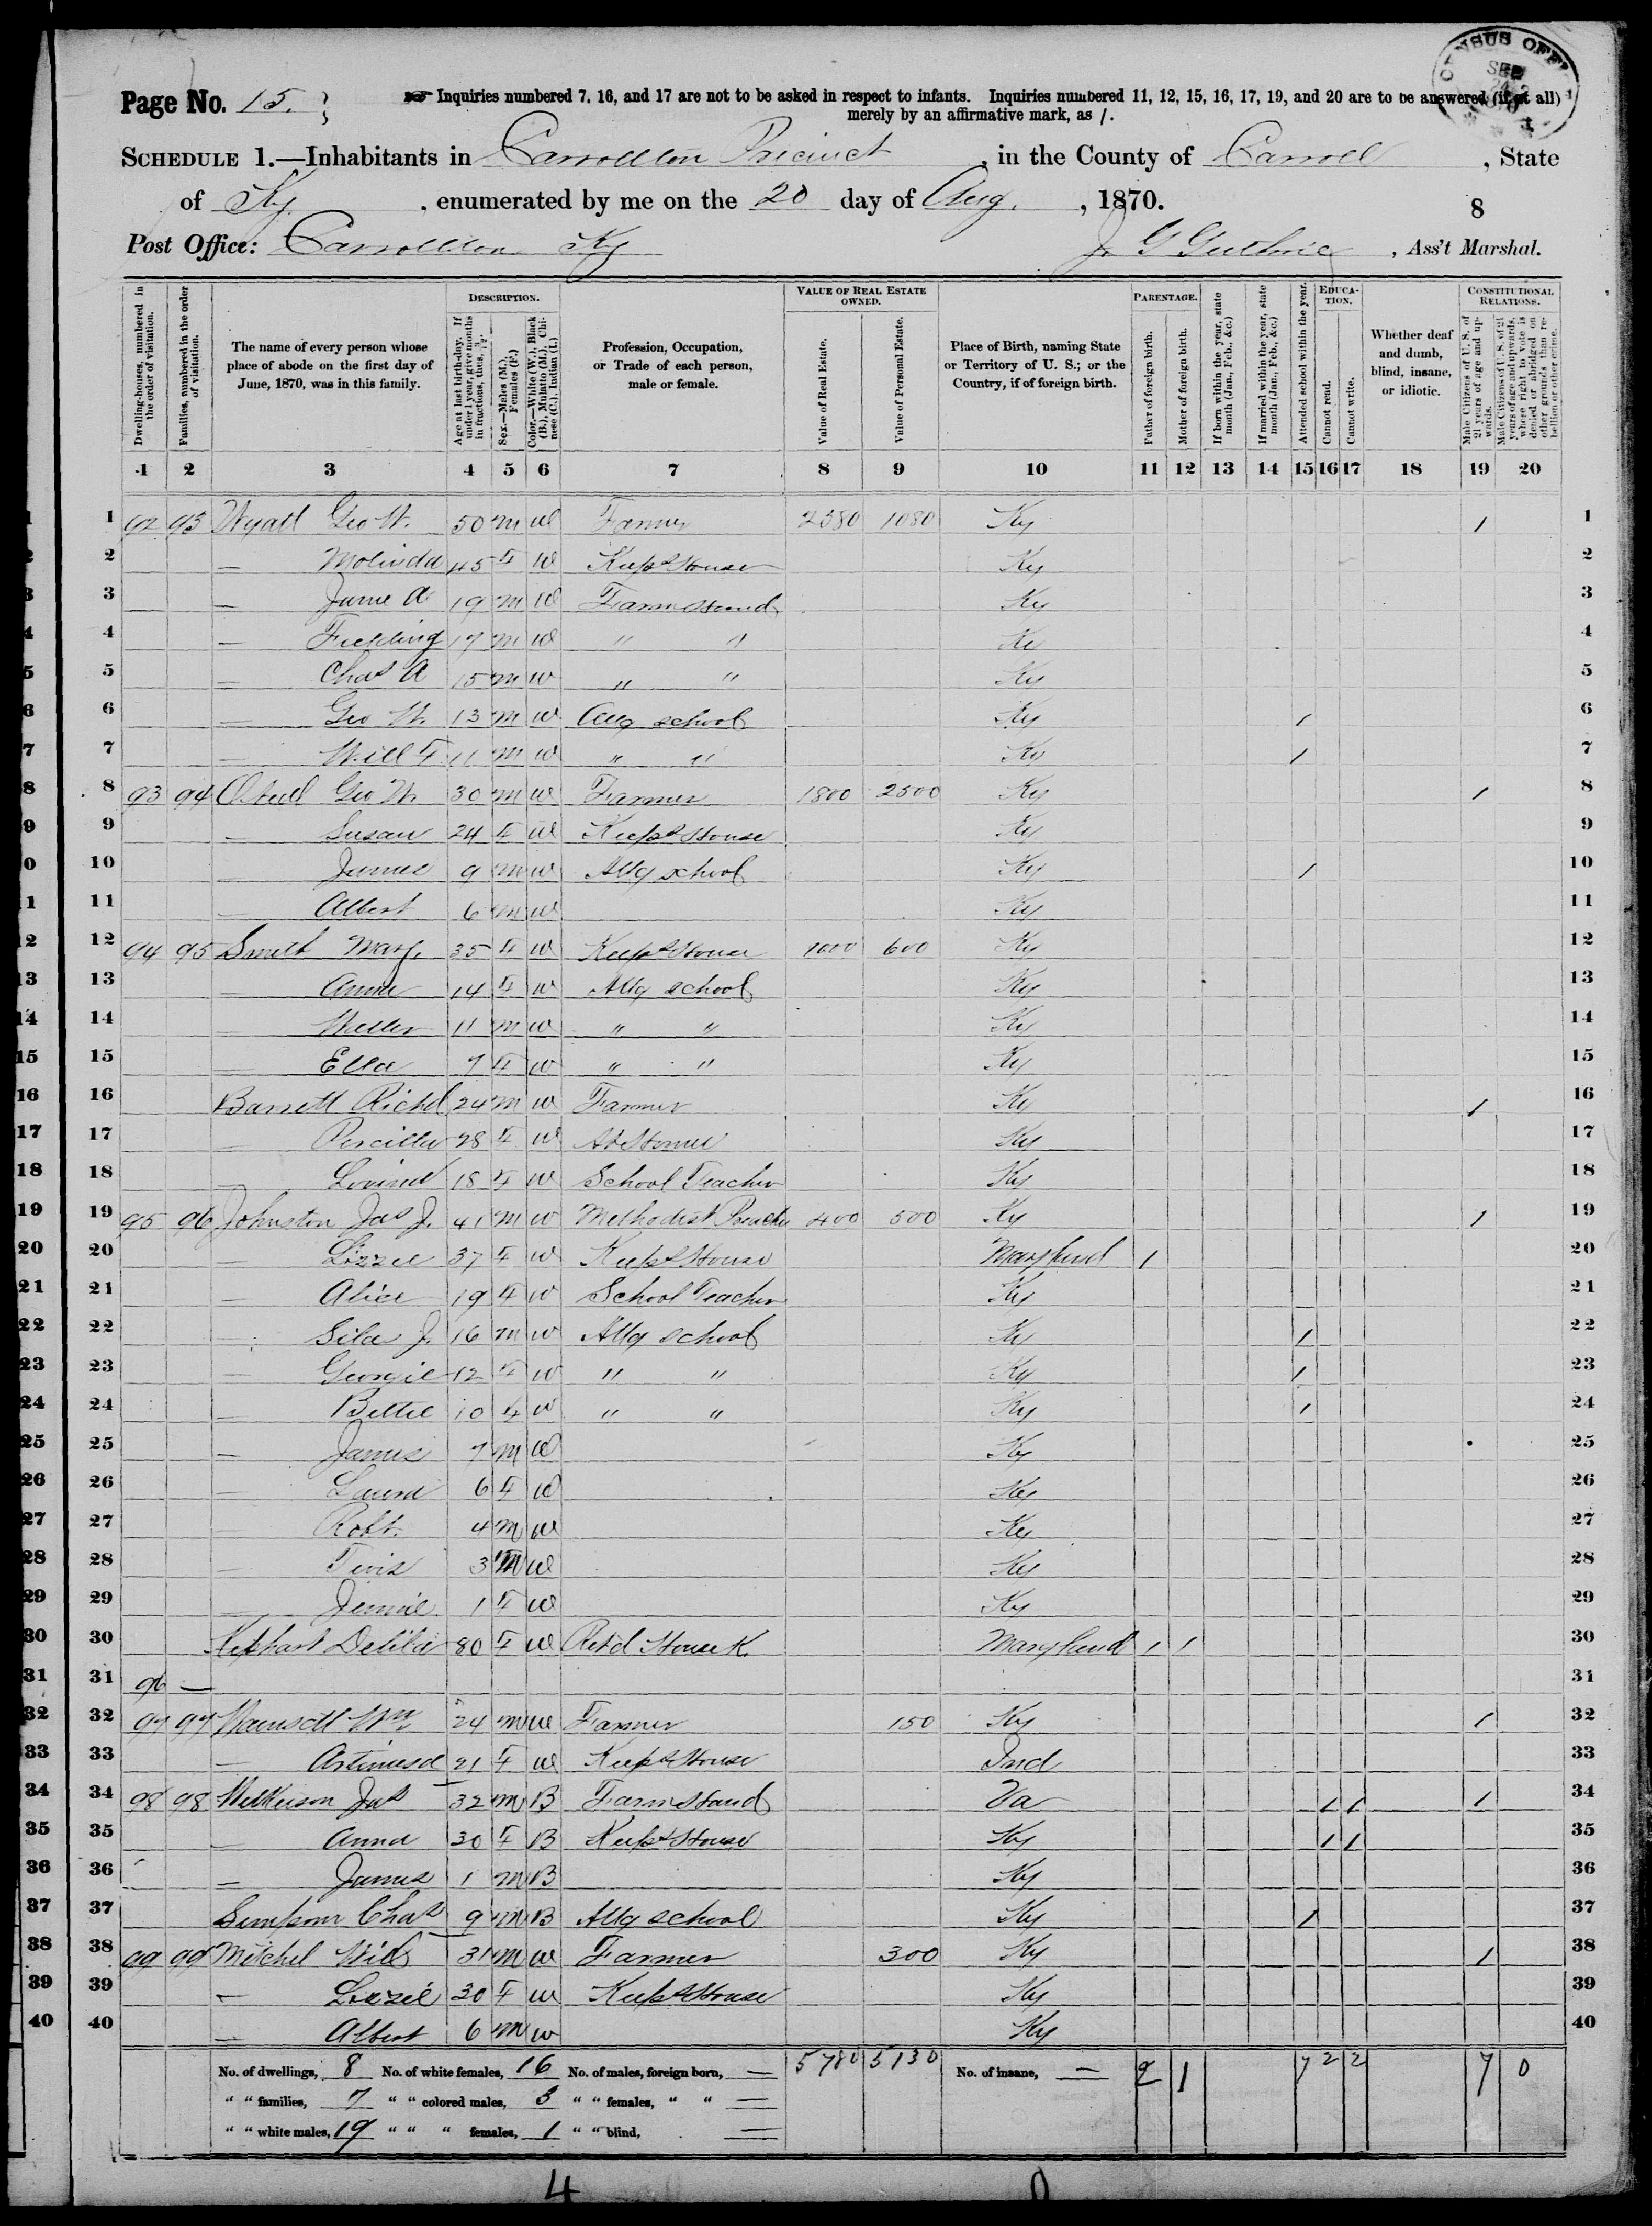 CENSUS OFFICE
Page No. 15.
Inquiries numbered 7, 16, and 17 are not to be asked in respect to infants. Inquiries numbered 11, 12, 15, 16, 17, 19, and 20 are to be answered (if at all)
merely by an affirmative mark, as /.
SCHEDULE 1.—Inhabitants in Carrollton Precinct, in the County of Carroll, State
of Ky, enumerated by me on the 20 day of Aug., 1870.
8
Post Office: Carrollton Ky J. G Guthrie, Ass't Marshal.
Dwelling-houses, numbered in the order of visitation.
Families, numbered in the order of visitation.
The name of every person whose place of abode on the first day of June, 1870, was in this family.
DESCRIPTION.
Age at last birth-day. If under 1 year, give months in fractions, thus, 3/12.
Sex.—Males (M.), Females (F.)
Color.—White (W.), Black (B.), Mulatto (M.), Chinese (C.), Indian (I.)
Profession, Occupation, or Trade of each person, male or female.
VALUE OF REAL ESTATE OWNED.
Value of Real Estate.
Value of Personal Estate.
Place of Birth, naming State or Territory of U. S.; or the Country, if of foreign birth.
PARENTAGE.
Father of foreign birth.
Mother of foreign birth.
If born within the year, state month (Jan., Feb., &c.)
If married within the year, state month (Jan., Feb., &c.)
Attended school within the year.
EDUCATION.
Cannot read.
Cannot write.
Whether deaf and dumb, blind, insane, or idiotic.
CONSTITUTIONAL RELATIONS.
Male Citizens of U. S. of 21 years of age and upwards.
Male Citizens of U. S. of 21 years of age and upwards, where right to vote is denied or abridged on other grounds than rebellion or other crime.
1 2 3 4 5 6 7 8 9 10 11 12 13 14 15 16 17 18 19 20
1 92 93 Wyatt Geo W. 50 m w Farmer 2580 1080 Ky / 1
2 — Molinda 45 F w Keeps House Ky 2
3 — 19 m w Farm Hand Ky 3
4 — Fielding 17 m w " " Ky 4
5 — Chas A 15 m w " " Ky 5
6 — Geo W. 13 m w school Ky / 6
7 — Will F 11 m w " " Ky / 7
8 93 94 Geo W. 30 m w Farmer 1800 2500 Ky / 8
9 — Susan 24 F w Keeps House Ky 9
10 — James 9 m w Attg school Ky / 10
11 — Albert 6 m w Ky 11
12 94 95 Smith Mary. 35 F w Keeps House 1000 600 Ky 12
13 — Anna 14 F w Attg school Ky 13
14 — 11 m w " " Ky 14
15 — Ella 7 F w " " Ky 15
16 Barrett Richd 24 m w Farmer Ky / 16
17 — Percilla 28 F w At Home Ky 17
18 — 18 F w School Teacher Ky 18
19 95 96 Johnston Jas J. 41 m w Methodist Preacher 400 500 Ky / 19
20 — Lizzie 37 F w Keeps House Maryland / 20
21 — Alice 19 F w School Teacher Ky 21
22 — Silas J. 16 m w Attg school Ky / 22
23 — Georgie 12 F w " " Ky / 23
24 — Bettie 10 F w " " Ky / 24
25 — James 7 m w Ky 25
26 — Laura 6 F w Ky 26
27 — Robt. 4 m w Ky 27
28 — Tivis 3 m w Ky 28
29 — Jennie 1 F w Ky 29
30 Kephart Delila 80 F w Retd House K. Maryland / / 30
31 96 — 31
32 97 97 Wainscott Wm 24 m w Farmer 150 Ky / 32
33 — Artimusa 21 F w Keeps House Ind 33
34 98 98 Wilkerson Jas 32 m B Farm Hand Va / / / 34
35 — Anna 30 F B Keeps House Ky / / 35
36 — James 1 m B Ky 36
37 Simpson Chas 9 m B Attg school Ky / 37
38 99 99 Mitchel Will 31 m w Farmer 300 Ky / 38
39 — Lizzie 30 F w Keeps House Ky 39
40 — Albert 6 m w Ky 40
No. of dwellings, 8 No. of white females, 16 No. of males, foreign born, — 5780 5130 No. of insane, — 2 1 7 2 2 7 0
" " families, 7 " " colored males, 3 " " females, " " —
" " white males, 19 " " " females, 1 " " blind, —
4